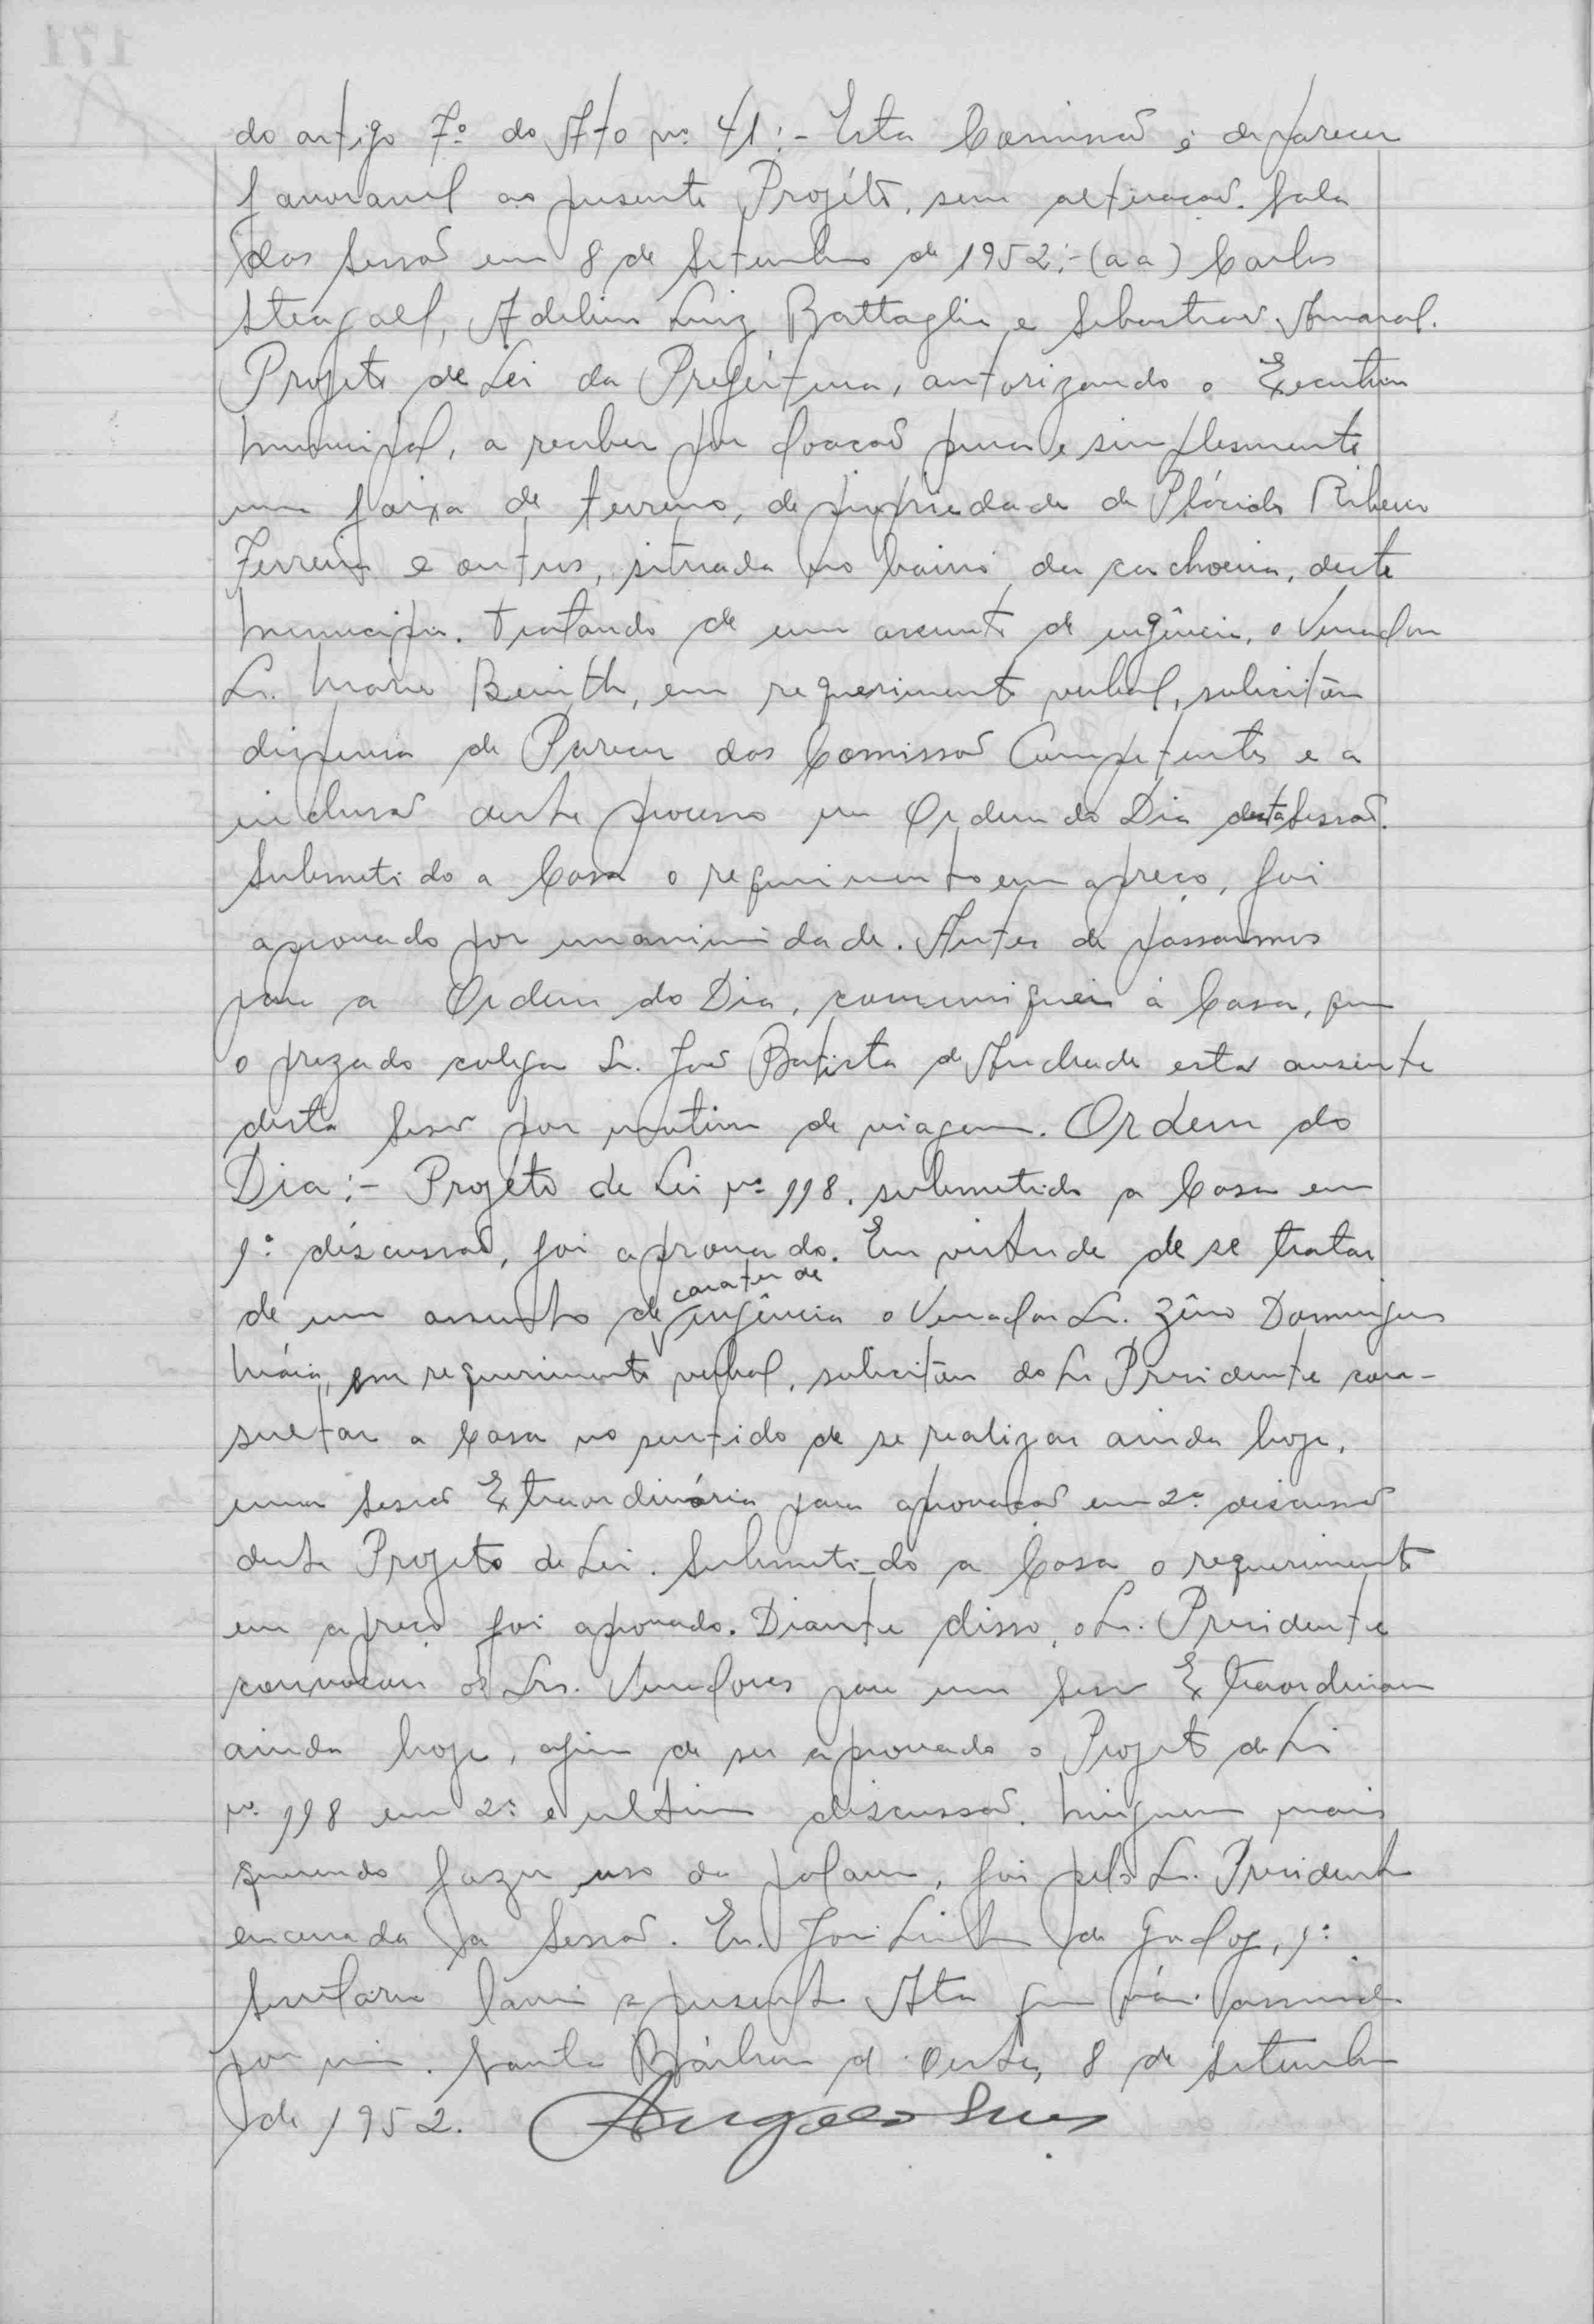 do artigo 7º do Ato nº 41:- Esta Comissão é de parecer
favoravel ao presente Projéto, sem alteração. Sala
das Sessão em 8 de Setembro de 1952:- (a a) Carlos
Steagall, Adelino Luiz Battaglia e Sebastião Amaral.
Projeto de Lei da Preféitura, autorizando o Executivo
Municipal, a receber por doação pura e simplesmente
uma faixa de terreno, de propriedade de Plácido Ribeiro
Ferreira e outros, situada no bairro da cachoeira, deste
Municipio. Tratando de um assunto de urgência, o Vereador
Sr. Mario , em requerimento verbal, solicitou
dispensa de Parecer das Comissão Competentes e a
inclusão deste processo em Ordem do Dia desta Sessão.
Submetido a Casa o requerimento em apreço, foi
aprovado por unanimidade. Antes de passarmos
para a Ordem do Dia, comuniquei á Casa, que
o prezado colega Sr. João Batista de Andrade está ausente
desta Sessão por motivo de viagem. Ordem do
Dia:- Projéto de Lei nº 118. submetido a Casa em
1ª discussão, foi aprovado. Em virtude de se tratar
de um assunto de carater de urgência o Vereador Sr. Zêno Domingues
Máia, em requerimento verbal, solicitou do Sr Presidente con-
sultar a Casa no sentido de se realizar ainda hoje,
uma Sessão Extraordinária para aprovação em 2ª discussão
deste Projeto de Lei. Submeti-do a Casa o requerimento
em apreço foi aprovado. Diante disso, o Sr. Presidente
convocou os Srs. Vereadores para uma Sessão Extraordinaria
ainda hoje, afim de ser aprovado o Projeto de Lei
nº 118 em 2ª e ultima discussão. Ninguem mais
querendo fazer uso da palavra, foi pelo Sr. Presidente
encerrada a Sessão. Eu. de Godoy, 1º
Secretário lavrei a presente Ata que vái assinada
por mim. Santa Bárbara d'Oeste, 8 de Setembro
de 1952.
171